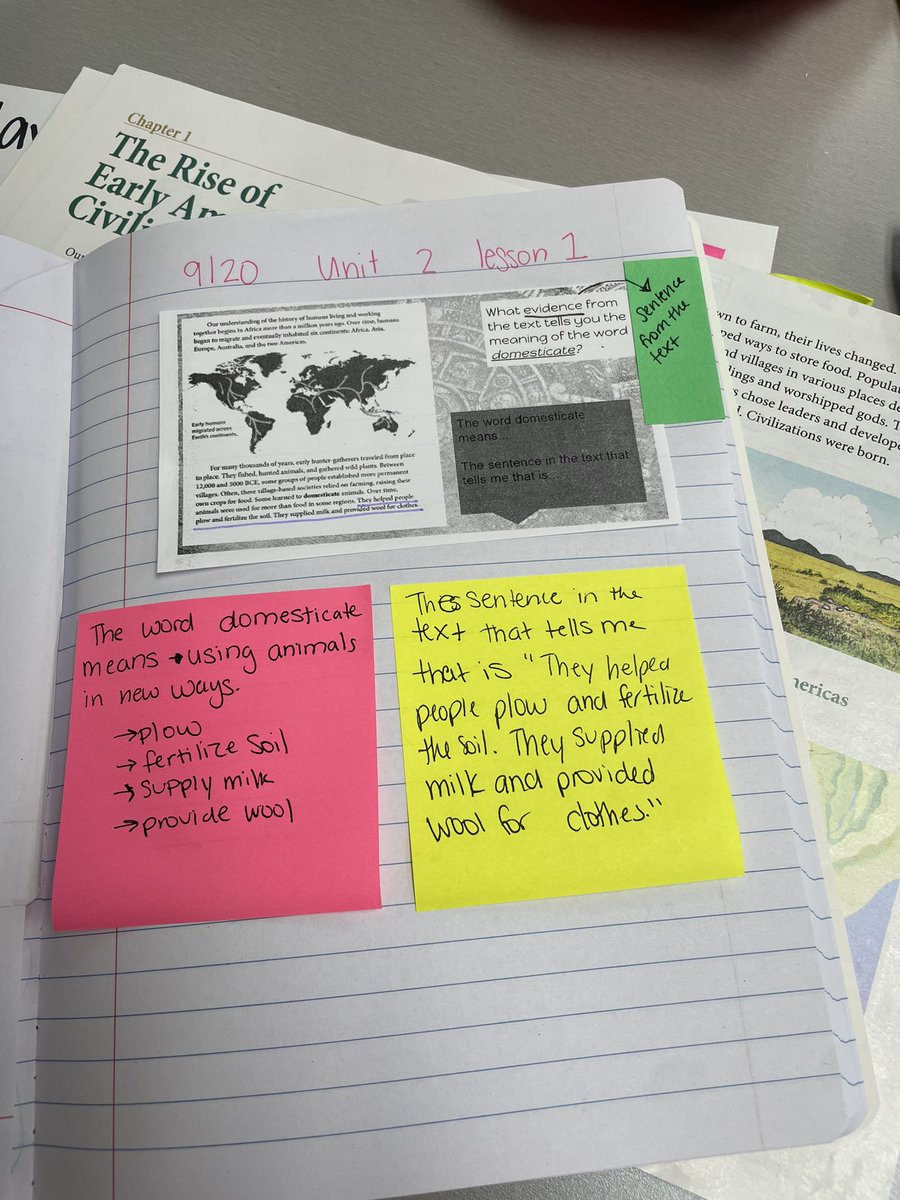 Chapter 1
The Rise of
Early Am
Civili
Our
9/20 Unit 2 lesson 1
Our understanding of the history of humans living and working
together begins in Africa more than a million years ago. Over time, humans
began to migrate and eventually inhabited six continents: Africa, Asia,
Europe, Australia, and the two Americas.
Early humans
migrated across
Earth's continents.
For many thousands of years, early hunter-gatherers traveled from place
to place. They fished, hunted animals, and gathered wild plants. Between
12,000 and 5000 BCE, some groups of people established more permanent
villages. Often, these village-based societies relied on farming, raising their
own crops for food. Some learned to domesticate animals. Over time,
animals were used for more than food in some regions. They helped people
plow and fertilize the soil. They supplied milk and provided wool for clothes.
What evidence from
the text tells you the
meaning of the word
domesticate?
The word domesticate
means...
The sentence in the text that
tells me that is...
Sentence
from the
text
The word domesticate
means → using animals
in new ways.
→ plow
→ fertilize soil
→ supply milk
→ provide wool
Thes sentence in the
text that tells me
that is "They helped
people plow and fertilize
the soil. They supplied
milk and provided
wool for clothes."
wn to farm, their lives changed.
ped ways to store food. Populat
nd villages in various places de
ldings and worshipped gods. T
s chose leaders and develope
d. Civilizations were born.
mericas